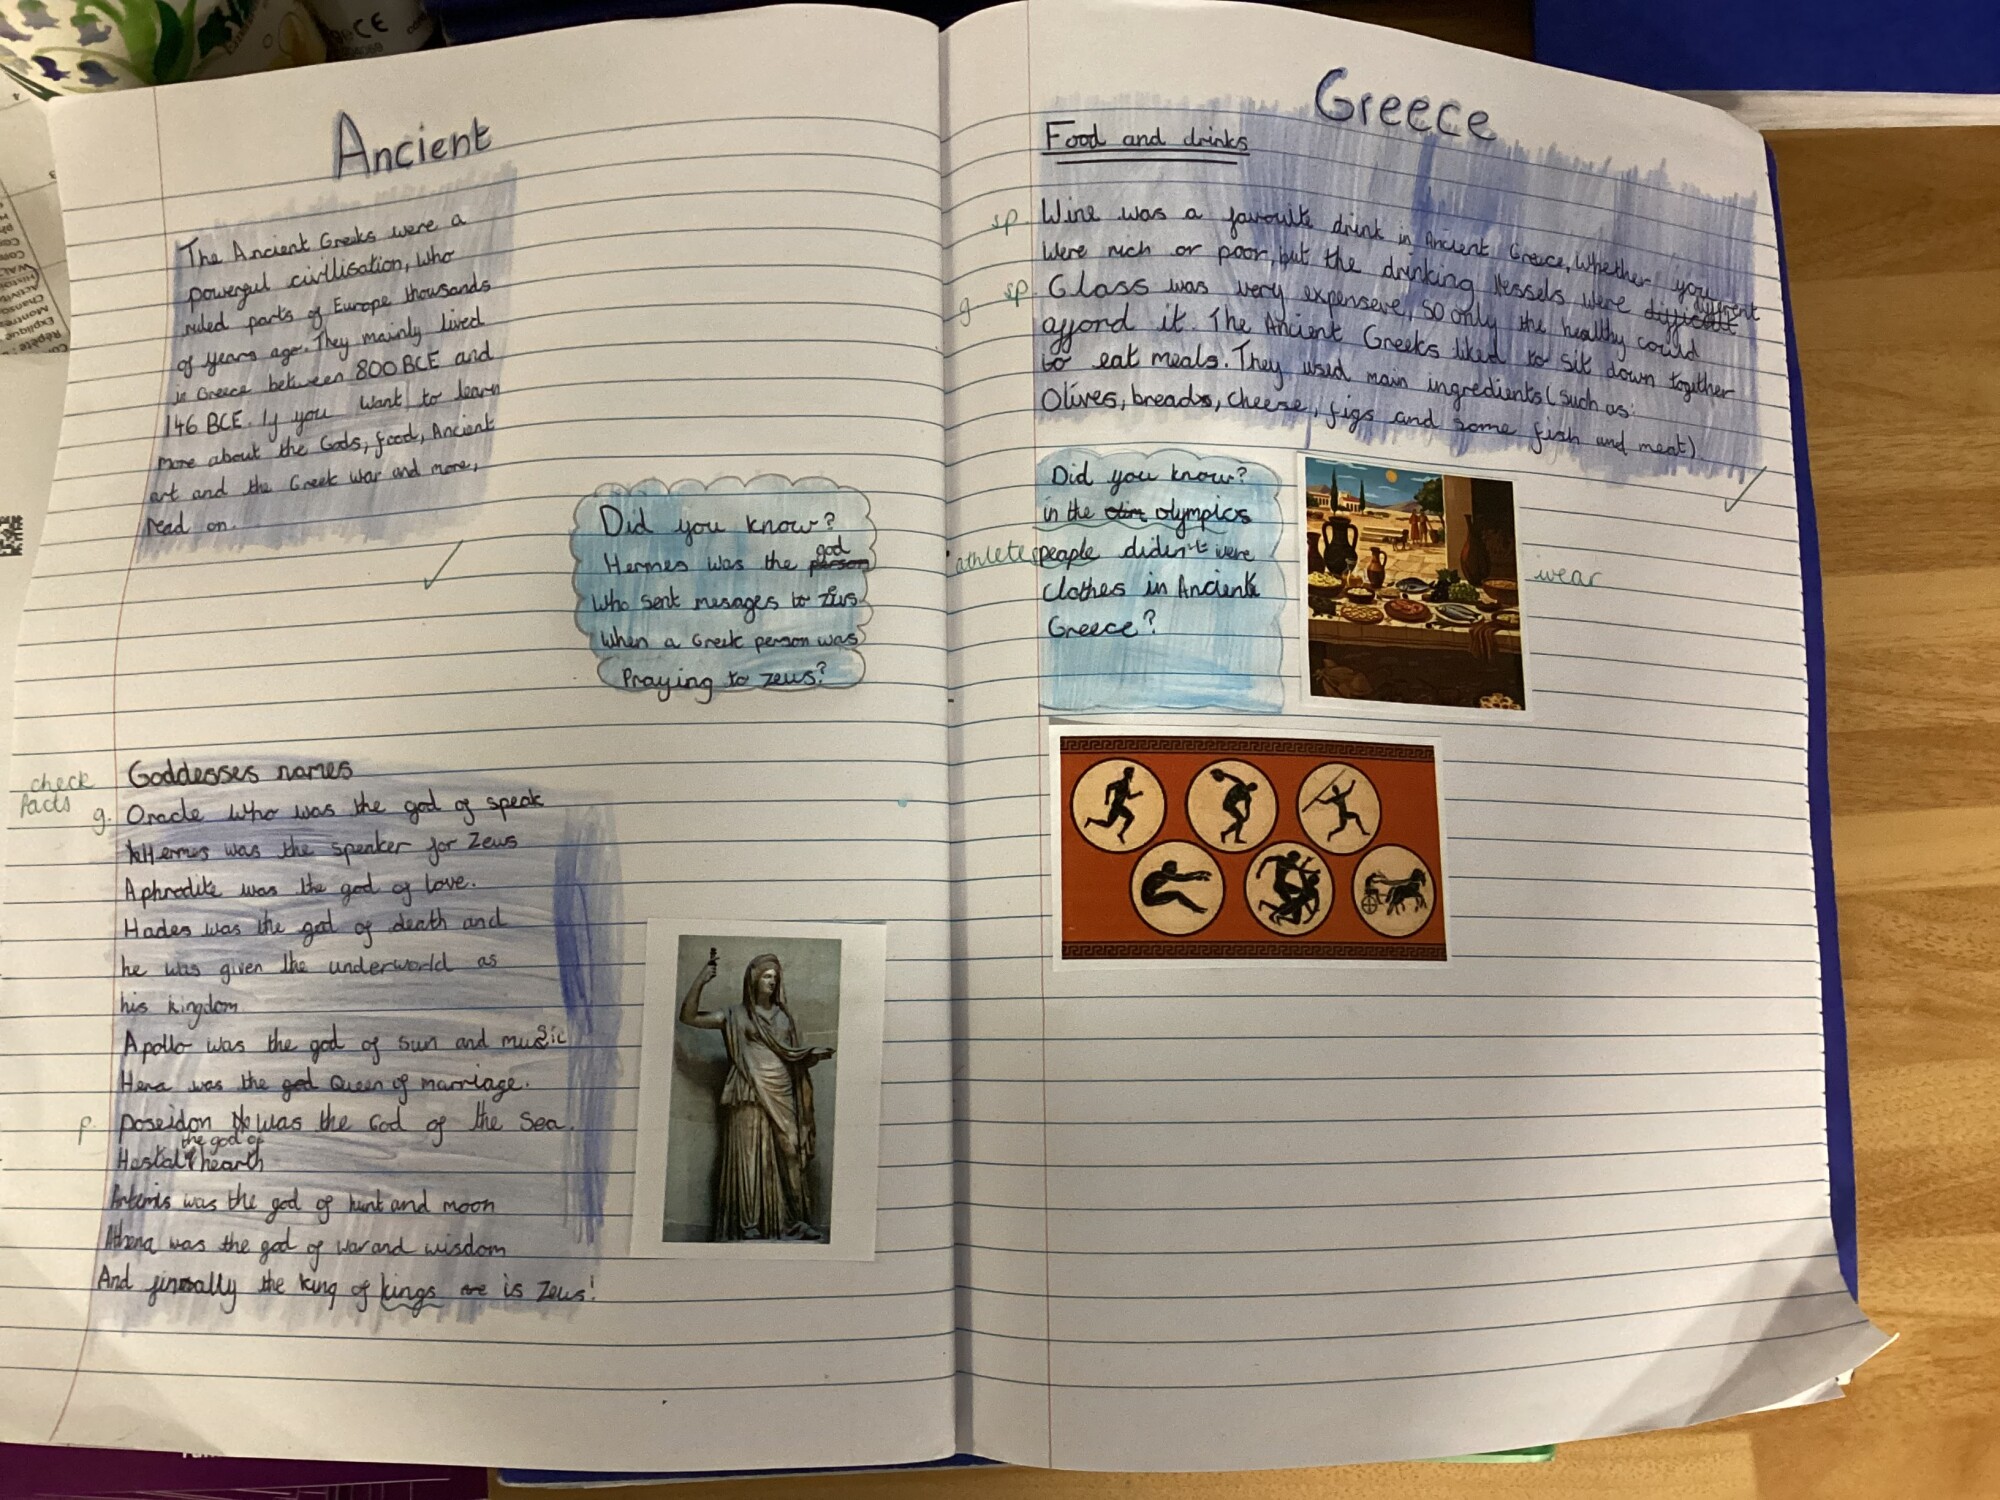 Ancient
The Ancient Greeks were a
powerful civilisation, who
ruled parts of Europe thousands
of years ago. They mainly lived
in Greece between 800 BCE and
146 BCE. If you want to learn
more about the Gods, food, Ancient
art and the Greek war and more,
read on.
Did you know?
god
Hermes was the person
who sent mesages to Zeus
when a Greek person was
Praying to zeus?
check
facts
Goddesses names
g. Oracle who was the god of speak
Hermes was the speaker for Zeus
Aphrodite was the god of love.
Hades was the god of death and
he was given the underworld as
his kingdom
Apollo was the god of sun and music
Hera was the god Queen of marriage.
p. Poseidon was the God of the sea.
the god of
Hestal hearth
Artemis was the god of hunt and moon
Athena was the god of war and wisdom
And finnally the king of kings are is Zeus!
Greece
Food and drinks
sp Wine was a favouite drink in Ancient Greece, whether you
were rich or poor, but the drinking Vessels were difficult
different
g sp Glass was very expenseve, so only the healthy could
affond it. The Ancient Greeks liked to sit down together
to eat meals. They used main ingredients (such as:
Olives, breads, cheese, figs and some fish and meat)
Did you know?
in the olim olympics
athletes people didien't were
wear
clothes in Ancient
Greece?